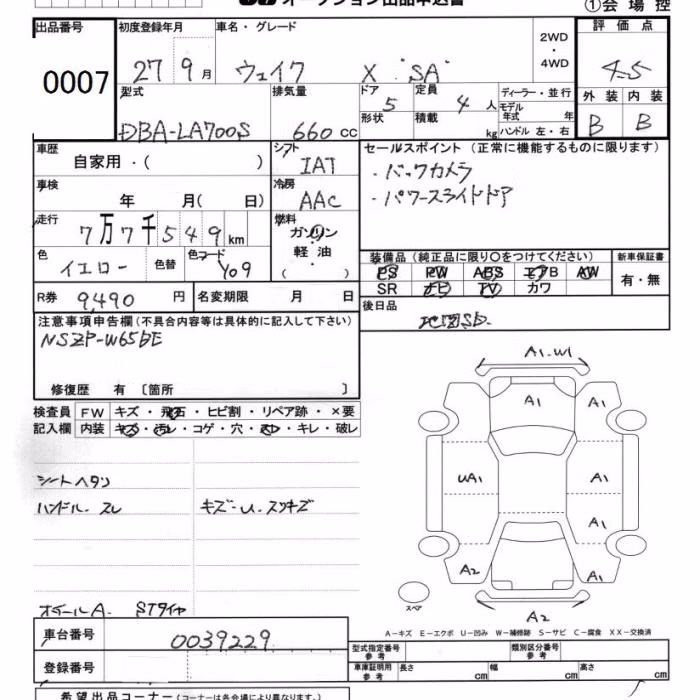 オークション出品申込書 ①会場控
出品番号 0007
初度登録年月 27 9月
車名・グレード ウェイク X "SA"
2WD・4WD
評価点 4.5
外装 B 内装 B
型式 DBA-LA700S
排気量 660 cc
ドア 5 定員 4人
形状 積載 kg
ディーラー・並行
モデル年式 年
ハンドル 左・右
車歴 自家用・( )
シフト IAT
冷房 AAC
車検 年 月( 日)
走行 7万7千549km
燃料 ガソリン・軽油・( )
色 イエロー 色替 色コード Y09
R券 9,490円 名変期限 月 日
セールスポイント(正常に機能するものに限ります)
・バックカメラ
・パワースライドドア
装備品(純正品に限り○をつけてください) 新車保証書
PS PW ABS エアB AW 有・無
SR ナビ TV カワ
後日品 地図SD
注意事項申告欄(不具合内容等は具体的に記入して下さい)
NSZP-W65DE
修復歴 有〔箇所 〕
検査員 FW キズ・飛石・ヒビ割・リペア跡・×要
記入欄 内装 キズ・汚レ・コゲ・穴・スレ・キレ・破レ
シートヘタリ
ハンドル.スレ キズ・U.スリキズ
ホイールA. STタイヤ
A1.W1
A1 A1
UA1 A1
A1
A2 A1
スペア
A2
A-キズ E-エクボ U-凹み W-補修跡 S-サビ C-腐食 XX-交換済
車台番号 0039229
登録番号
型式指定番号 参考 類別区分番号 参考
車庫証明用 参考 長さ cm 幅 cm 高さ cm
希望出品コーナー(コーナーは各会場により異なります。)